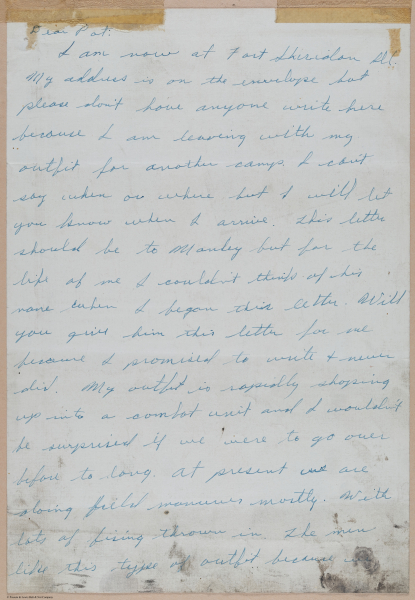 Dear Pat:
I am now at Fort Sheridan Ill.
My address is on the envelope but
please don't have anyone write here
because I am leaving with my
outfit for another camp. I can't
say when or where but I will let
you know when I arrive. This letter
should be to Manley but for the
life of me I couldn't think of his
name when I began this letter. Will
you give him this letter for me
because I promised to write & never
did. My outfit is rapidly shaping
up into a combat unit and I wouldn't
be surprised if we were to go over
before to long. At present we are
doing field manuvers mostly. With
lots of firing thrown in. The men
like this type of outfit because